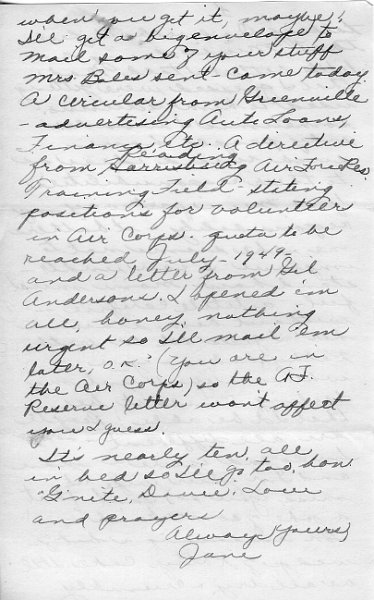 when you get it, maybe!
I'll get a big envelope to
mail some of your stuff
Mrs Bales sent - come today.
A circular from Greenville
- advertising Auto Loans,
Finance, etc. A directive
Reading
from Harrisburg Air Force Res.
Training Field - stating
positions for volunteer
in Air Corps. quota to be
reached July - 1949 -
and a letter from Gil
Andersons. I opened 'em
all, honey, nothing
urgent so I'll mail 'em
later, O.K.? (You are in
the Air Corps) so the A.F.
Reserve letter won't affect
you I guess.
It's nearly ten, all
in bed so I'll go too, hon.
'G'nite, Davie. Love
and prayers
Always Yours,
Jane